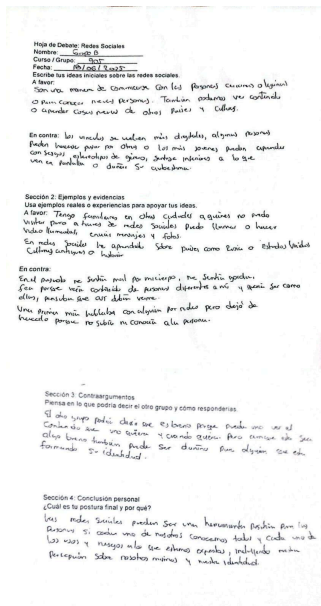 Hoja de Debate: Redes Sociales
Nombre: Grupo B
Curso / Grupo: 905
Fecha: /06/2025
Escribe tus ideas iniciales sobre las redes sociales.
A favor:
Son una manera de comunicarse con las Personas cercanas o lejanas
o para conocer nuevas Personas. También podemos ver contenido
o aprender cosas nuevas de otros Países y Culturas.
En contra: los vinculos se vuelven más digitales, algunas personas
Pueden hacerse pasar por otras o los más jovenes pueden aprender
con sesgos, estereotipos de género, sentirse inferiores a lo que
ven en pantalla o dañar su autoestima.
Sección 2: Ejemplos y evidencias
Usa ejemplos reales o experiencias para apoyar tus ideas.
A favor: Tengo familiares en otras Ciudades a quienes no puedo
visitar pero a traves de redes Sociales Puedo llamar o hacer
Video llamadas, enviar mensajes y fotos.
En redes Sociales he aprendido Sobre países como Rusia o Estados Unidos
Culturas antiguas o
En contra:
En el pasado me sentía mal por mi cuerpo, me Sentía gorda.
Sea porque veía contenido de personas diferentes a mí y quería Ser como
ellas, pensaba que así debía verme.
Una prima mía hablaba con alguien por redes pero dejó de
hacerlo porque no sabía ni conocía a la persona.
Sección 3: Contraargumentos
Piensa en lo que podría decir el otro grupo y cómo responderías.
El otro grupo podría decir que es bueno porque puede uno ver el
Contenido que uno quiera y cuando quiera. Pero aunque esto sea
algo bueno también puede Ser dañino Para alguien que está
formando Su identidad.
Sección 4: Conclusión personal
¿Cuál es tu postura final y por qué?
Las redes Sociales pueden Ser una herramienta Positiva Para las
Personas si cada uno de nosotros Conocemos todos y Cada uno de
los usos y riesgos a los que estamos expuestos, incluyendo nuestra
Percepción Sobre nosotros mismos y nuestra identidad.